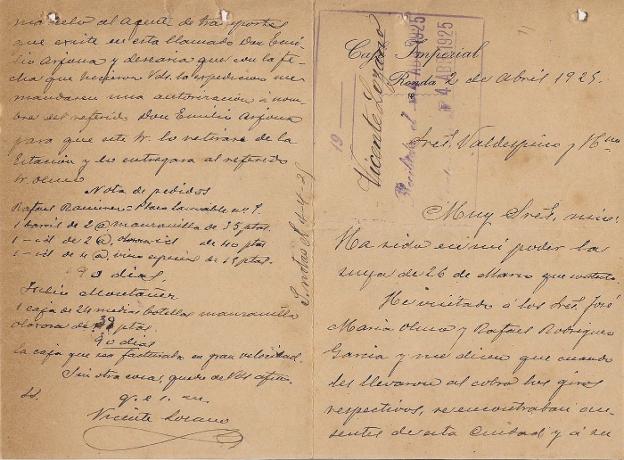 Café Imperial
Ronda 2 de Abril 1925.
4 ABR 1925
Vicente Lozano
19
Sres. Valdespino y Hno
Muy Sres. mios:
Ha sido en mi poder la
suya de 26 de Marzo que contesto.
He visitado á los Sres. José
Maria Olmo y Rafael Rodriguez
Garcia y me dicen que cuando
les llevaron al cobro los giros
respectivos, se encontraban au-
sentes de esta Ciudad y á su
al Agente de transportes
que existe en esta llamado Don Emi-
lio Arjona y desearia que con la fe-
cha que hicieran Vds. la expedicion me
mandaran una autorización á nom-
bre del referido Don Emilio Arjona
para que este Sr. lo retirase de la
Estación y lo entregara al referido
Sr. Olmo
Nota de pedidos
Rafael Ramirez = Plaza
1 barril de 2 @ manzanilla de 35 ptas.
1 - id de 2 @, de 40 ptas
1 - id. de 4 @, vino de ptas.
90 dias.
Julio Montañer
1 caja de 24 medias botellas manzanilla
olorosa de ptas.
90 dias
la caja que sea facturada en gran velocidad.
Sin otra cosa, quedo de Vds. afmo.
ss.
q. e. s. m.
Vicente Lozano